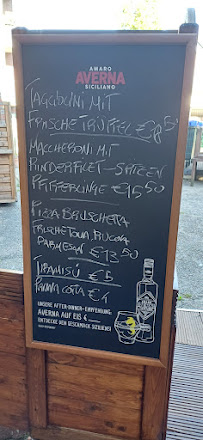 AMARO
AVERNA
SICILIANO
TAGLIOLINI MIT
FRISCHE TRÜFFEL €18,5
MACCHERONI MIT
RINDERFILET-SPITZEN
PFIFFERLINGE €15,50
PIZZA BRUSCHETTA
FRISCHE TOMA, RUCOLA
PARMESAN €13,50
TIRAMISÚ €5
PANNA COTTA €4
UNSERE AFTER-DINNER-EMPFEHLUNG:
AVERNA AUF EIS €
ENTDECKE DEN GESCHMACK SIZILIENS!